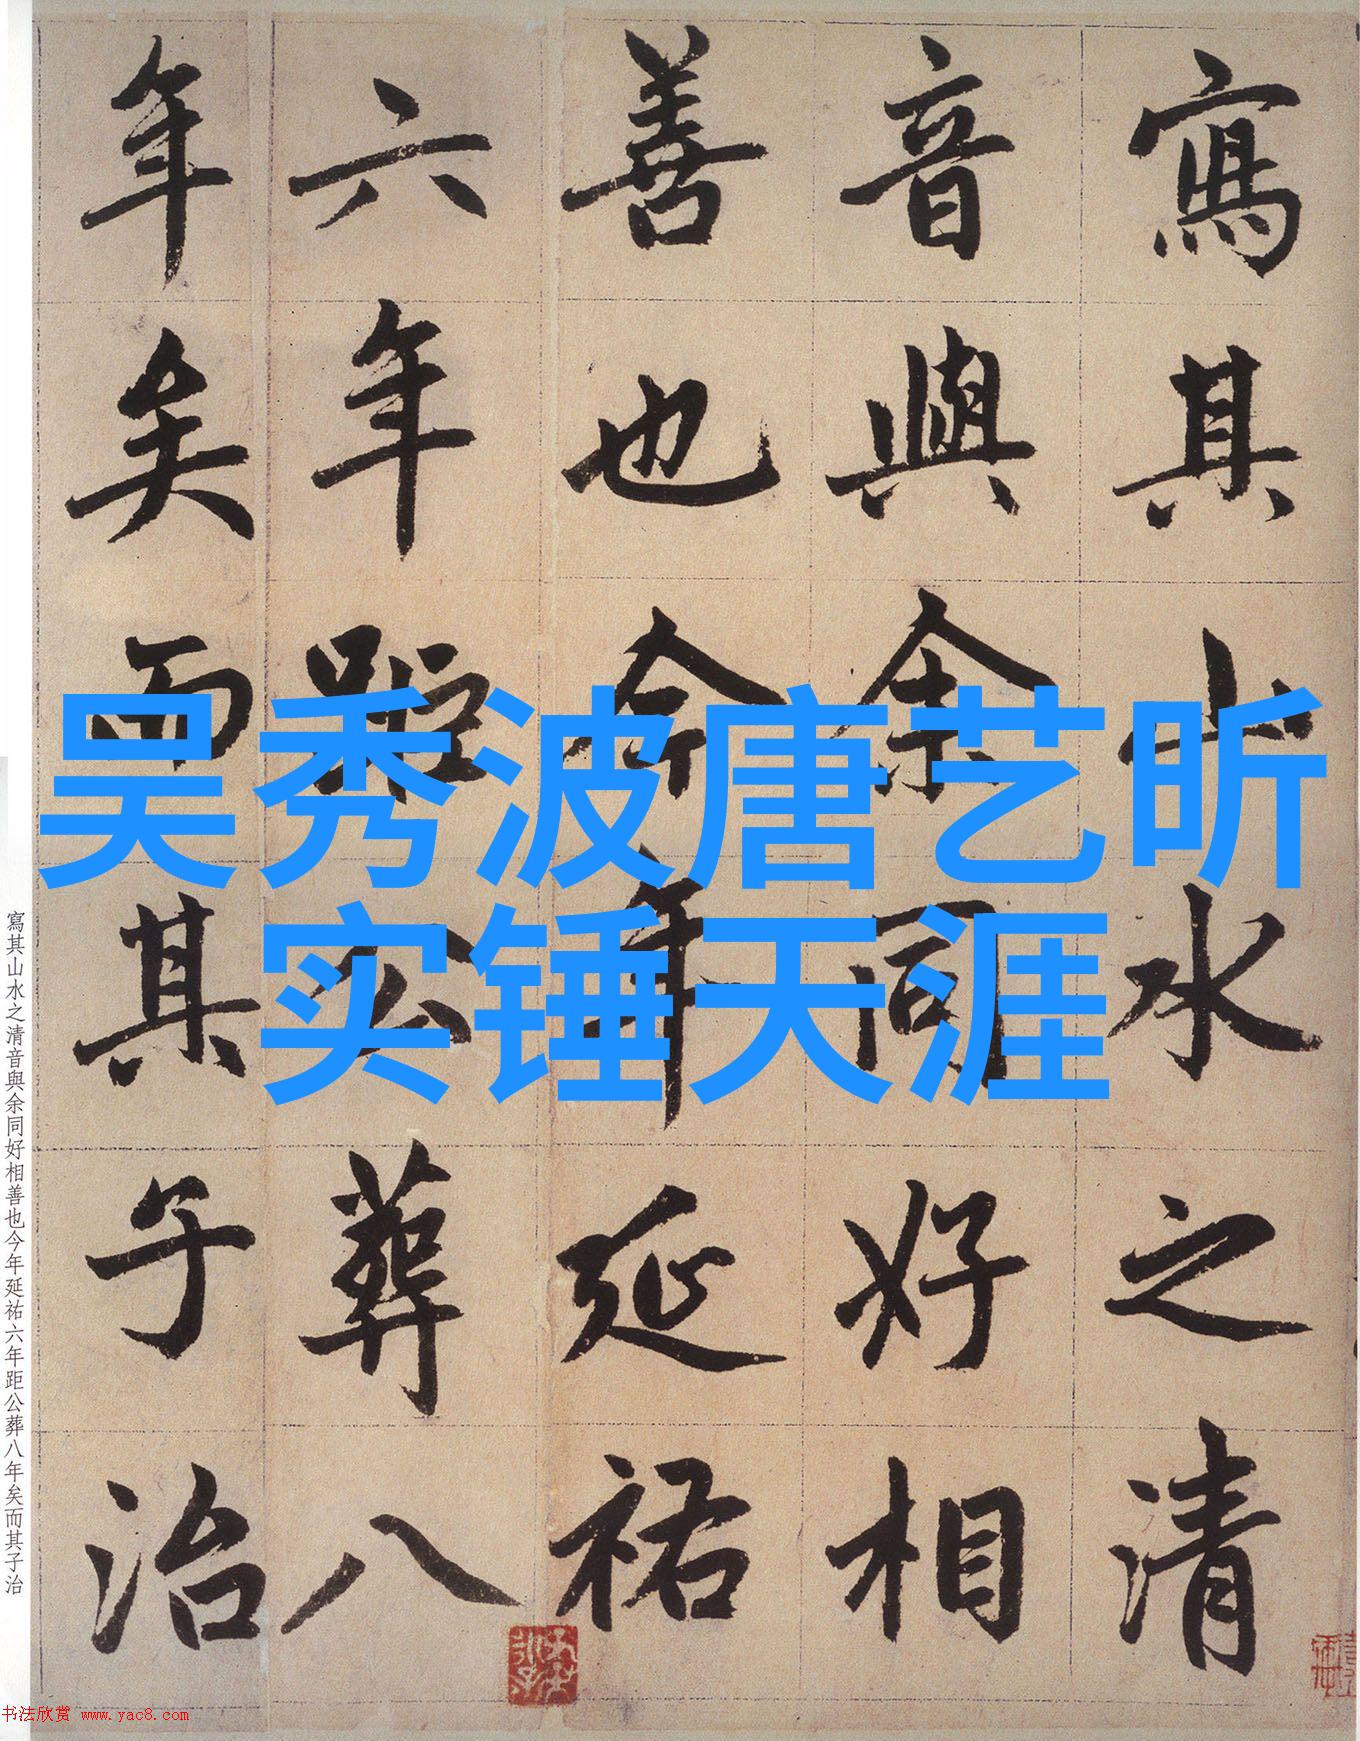 寫其山水之清
音與余同好相
善也今年延祐
六年距公葬八
年矣而其子治
吴秀波唐艺昕
实锤天涯
寫其山水之清音與余同好相善也今年延祐六年距公葬八年矣而其子治
书法欣赏 www.yac8.com